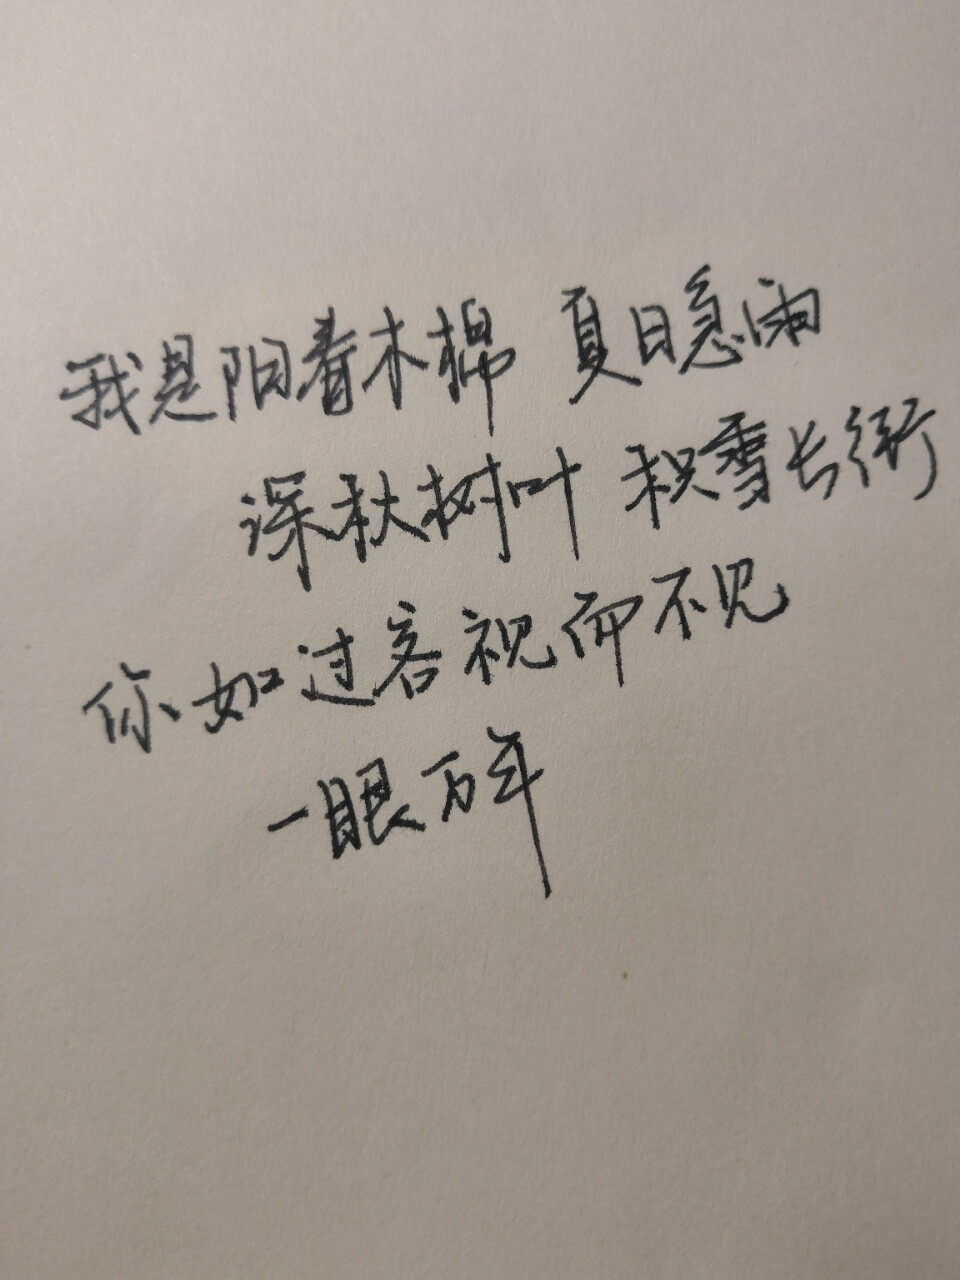 我是阳春木棉 夏日急雨
深秋树叶 积雪长街
你如过客视而不见
一眼万年